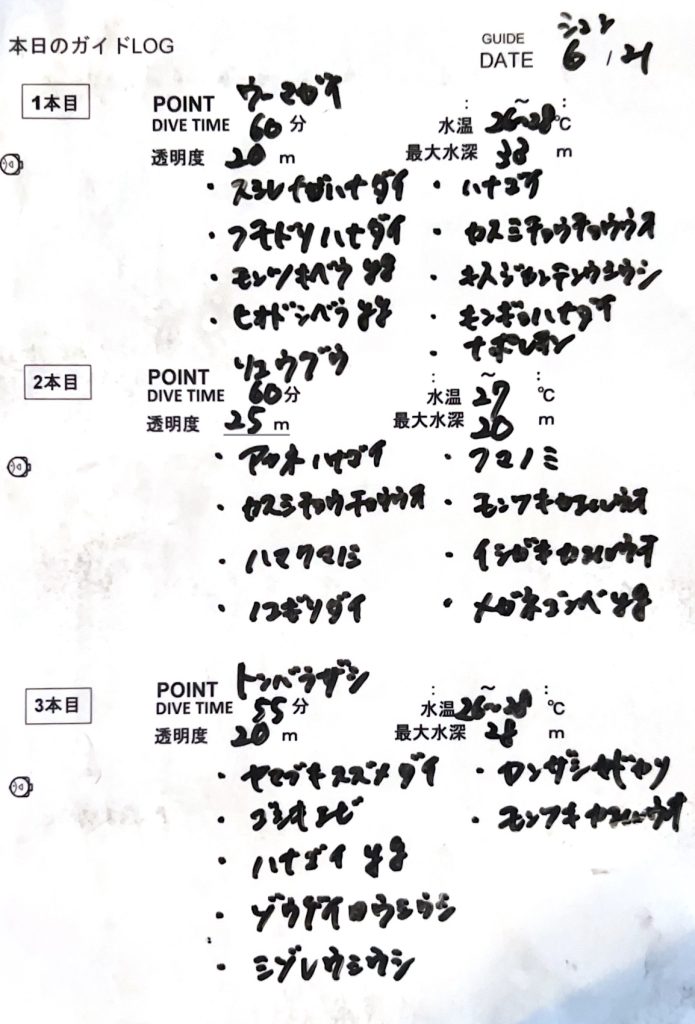 本日のガイドLOG
GUIDE ション
DATE 6 / 21
1本目
POINT ウーマガイ
DIVE TIME 60分
水温 26~28℃
透明度 20 m
最大水深 38 m
・スミレナガハナダイ ・ハナゴイ
・フチドリハナダイ ・カスミチョウチョウウオ
・モンツキベラ yg ・キスジカンテンウミウシ
・ヒオドシベラ yg ・キンギョハナダイ
・ナポレオン
2本目
POINT リュウグウ
DIVE TIME 60分
水温 27 ℃
透明度 25 m
最大水深 20 m
・アカネハナゴイ ・クマノミ
・カスミチョウチョウウオ ・モンツキカエルウオ
・ハマクマノミ ・イシガキカエルウオ
・ノコギリダイ ・メガネゴンベ yg
3本目
POINT トンバラザシ
DIVE TIME 55分
水温 26~28 ℃
透明度 20 m
最大水深 28 m
・ヤマブキスズメダイ ・カンザシヤドカリ
・ゴシキエビ ・モンツキカエルウオ
・ハナゴイ yg
・ゾウゲイロウミウシ
・ミゾレウミウシ